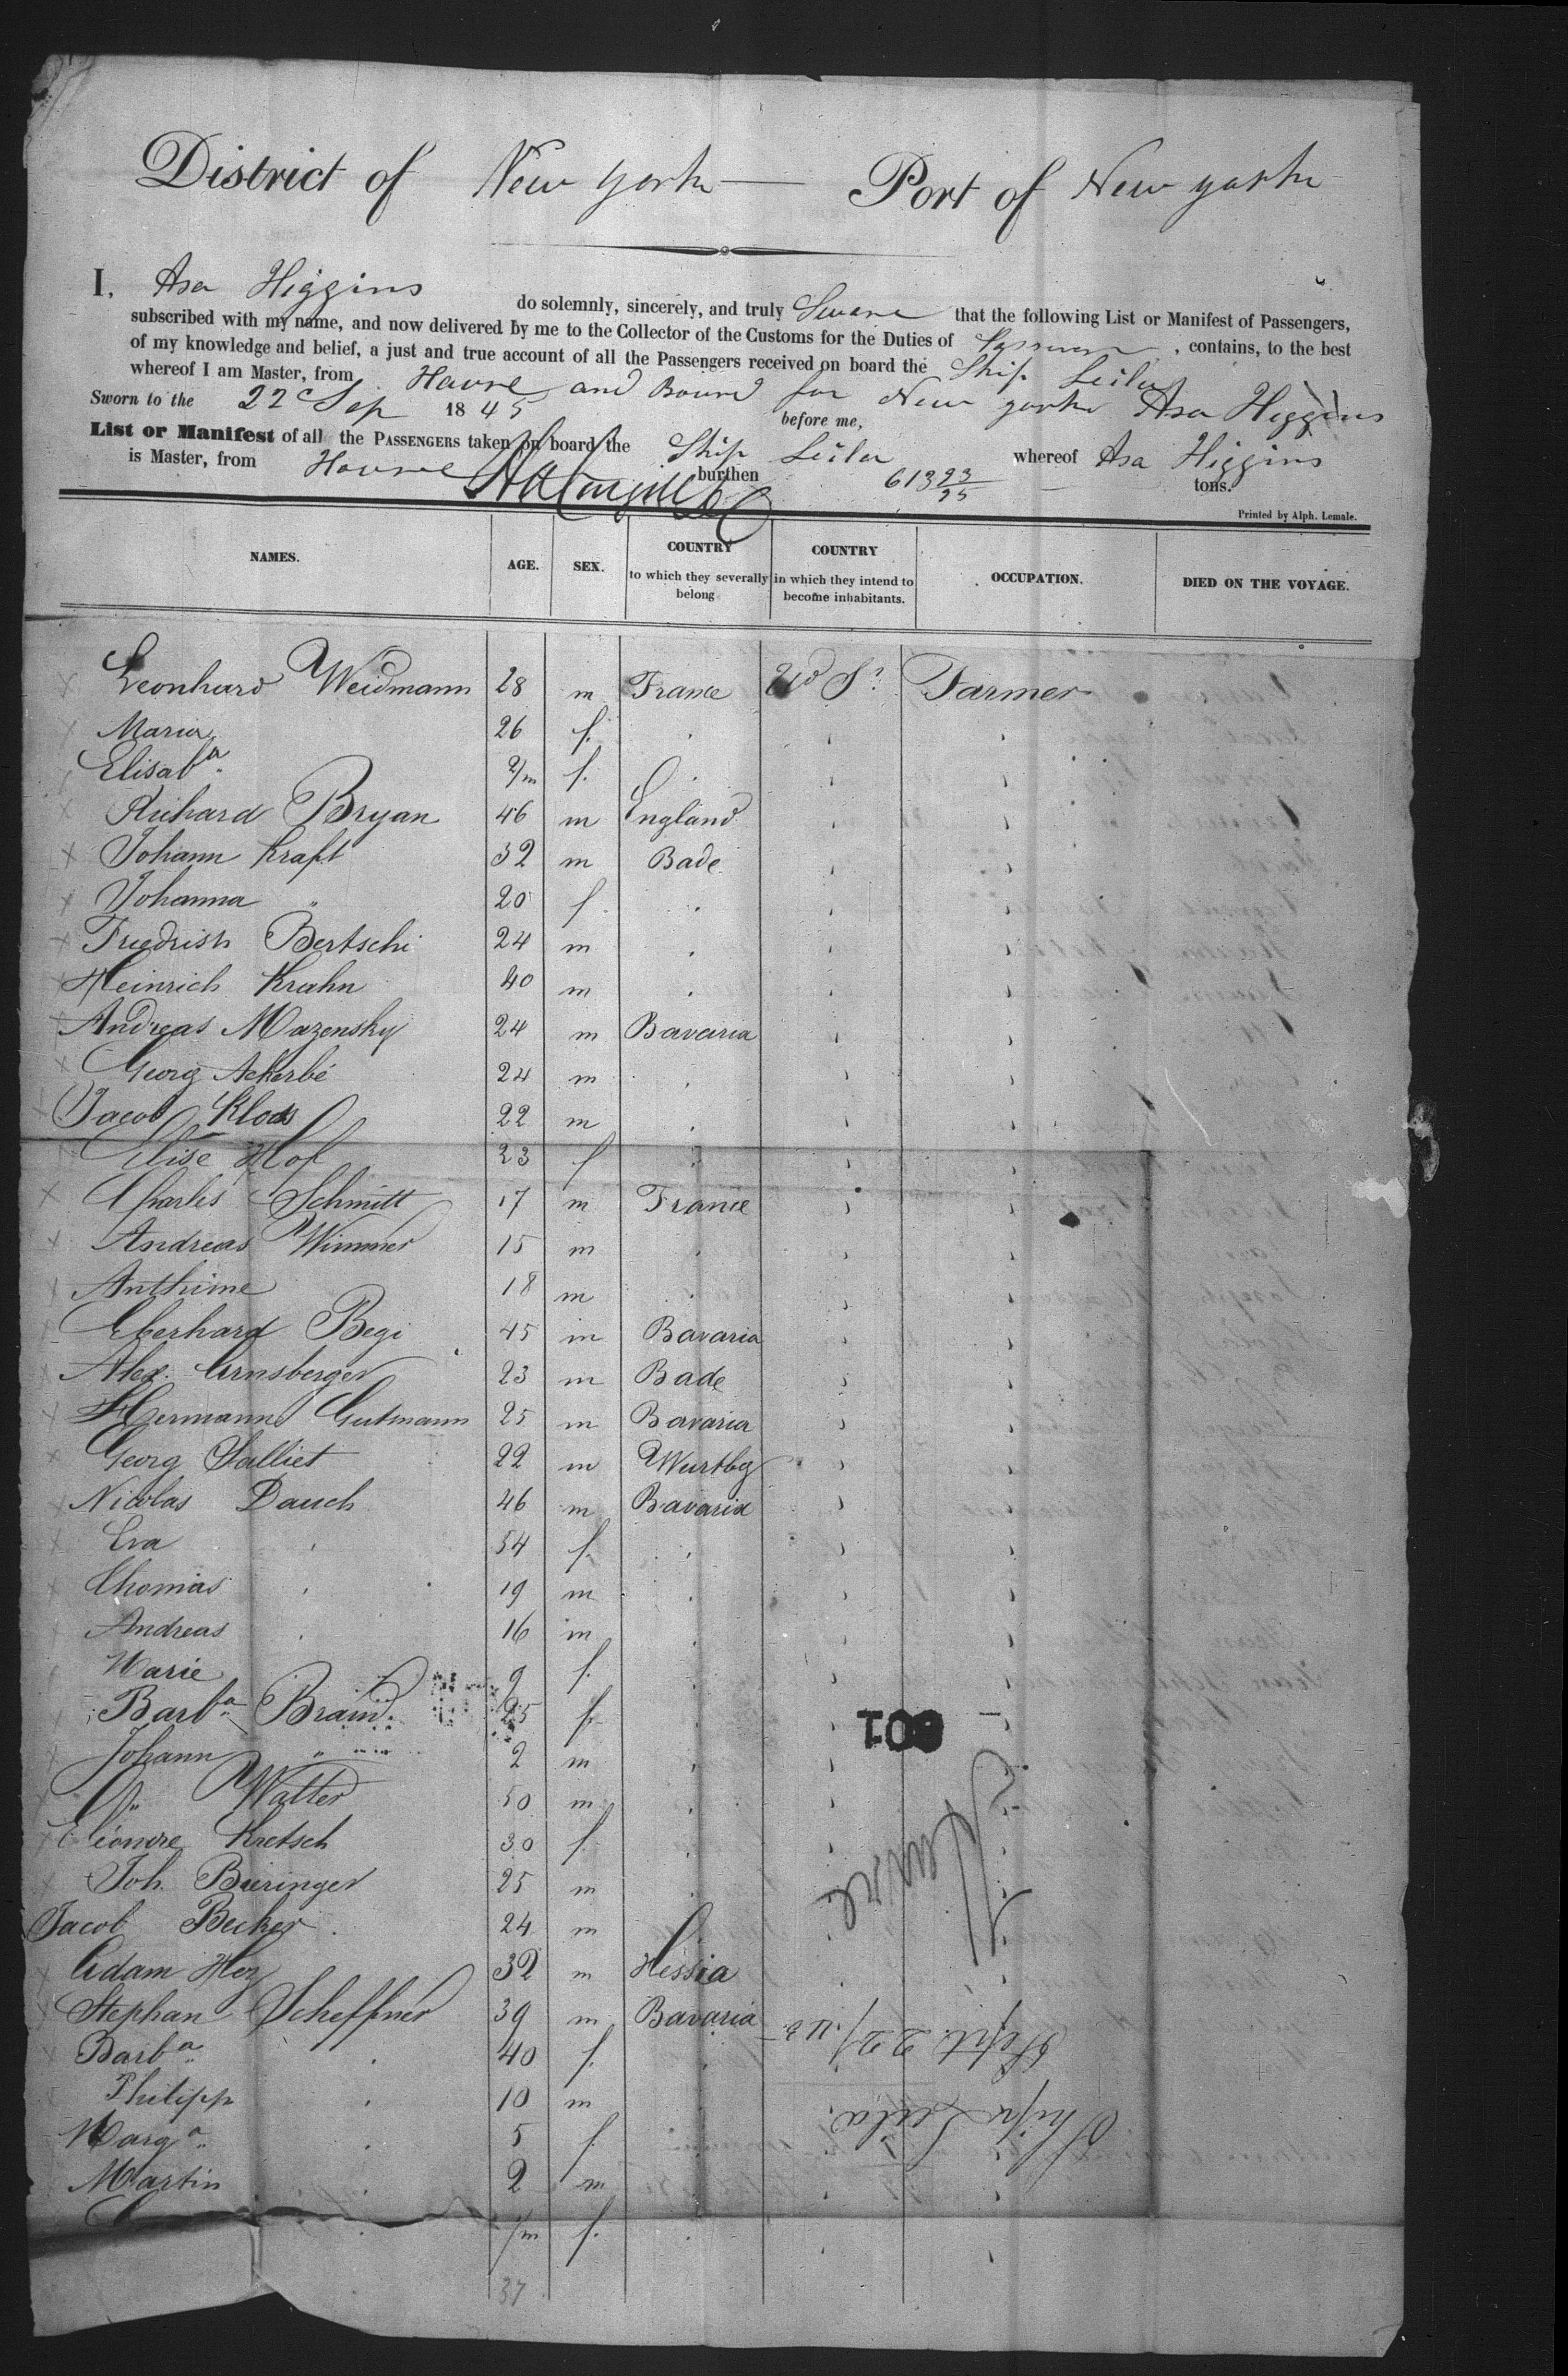 District of New York Port of New York
I, Asa Higgins do solemnly, sincerely, and truly Sware that the following List or Manifest of Passengers,
subscribed with my name, and now delivered by me to the Collector of the Customs for the Duties of , contains, to the best
of my knowledge and belief, a just and true account of all the Passengers received on board the Ship Leila
whereof I am Master, from Havre and Bound for New York Asa Higgins
Sworn to the 22 Sep 1845 before me,
List or Manifest of all the PASSENGERS taken on board the Ship Leila whereof Asa Higgins
is Master, from Havre burthen 613 23/95 tons.
Printed by Alph. Lemale.
NAMES. AGE. SEX. COUNTRY to which they severally belong COUNTRY in which they intend to become inhabitants. OCCUPATION. DIED ON THE VOYAGE.
Leonhard Weidmann 28 m France Ud Ss Farmer
Maria 26 f.
Elisab.a 9/m f.
Richard Bryan 46 m England
Johann Kraft 32 m Bade
Johanna " 20 f
Friedrish Bertschi 24 m
Heinrich Krahn 40 m
Andreas Mazensky 24 m Bavaria
Georg Ackerbé 24 m
Jacob Kloes 22 m
Elise Hof 23 f
Charles Schmitt 17 m France
Andreas Wimmer 15 m
Anthime 18 m
Eberhard Begi 45 m Bavaria
Alex. Arnsberger 23 m Bade
Hermann Gutmann 25 m Bavaria
Georg Salliet 22 m Wurtbg
Nicolas Dauch 46 m Bavaria
Eva 54 f.
Thomas 19 m
Andreas 16 m
Marie 9 f.
Barb.a Braun 25 f
Johann " 2 m
" Walter 50 m
Eleonore Kretsch 30 f
Joh. Bieringer 25 m
Jacob Becker 24 m
Adam Herz 32 m Hessia
Stephan Scheffner 39 m Bavaria
Barb.a 40 f.
Philipp 10 m
Marg.a 5 f.
Martin 2 m
/m f.
37
801
Havre
Sept. 22/45
Ship Leila